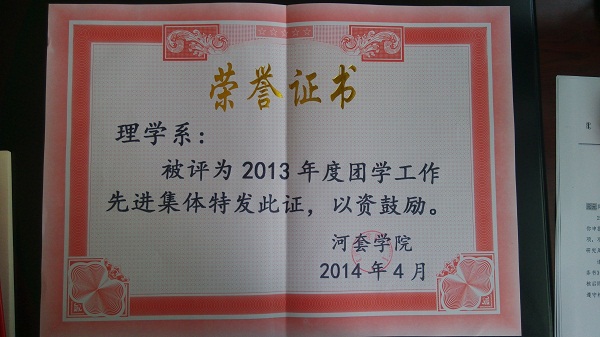 荣誉证书
理学系：
被评为2013年度团学工作
先进集体特发此证，以资鼓励。
河套学院
2014年4月